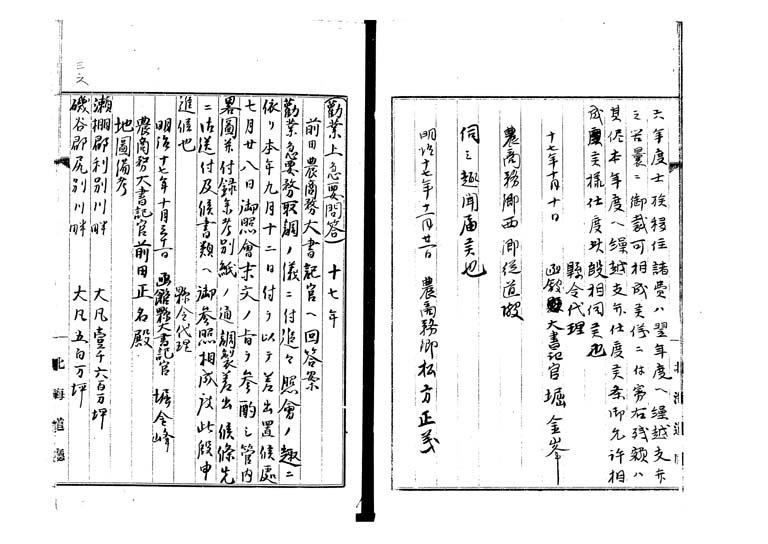 六年度士族移住諸費ハ翌年度ヘ繰越支弁
之若曩ニ御裁可相成候ニ付残額ハ
其侭本年度ヘ繰越支弁仕度候条御允許相
成候様仕度此段相伺候也
県令代理
十七年十月十日 函館県大書記官 堀金峰
農商務卿西郷従道殿
伺之趣聞届候也
明治十七年十一月廿一日 農商務卿松方正義
勧業上急要問答 十七年
前田農商務大書記官ヘ回答案
勧業急要務取調ノ儀ニ付追々照会ノ趣ニ
依リ本年九月十二日付ヲ以テ差出置候処
七月廿八日御照会末文ノ旨ヲ参酌シ管内
畧図並付録等別紙ノ通調製差出候条先
ニ御送付及候書類ヘ御参照相成度此段申
進候也
県令代理
明治十七年十月三十日 函館県大書記官 堀金峰
農商務大書記官前田正名殿
地図備考
瀬棚郡利別川畔 大凡壹千六百万坪
磯谷郡尻別川畔 大凡五百万坪
北海道廳